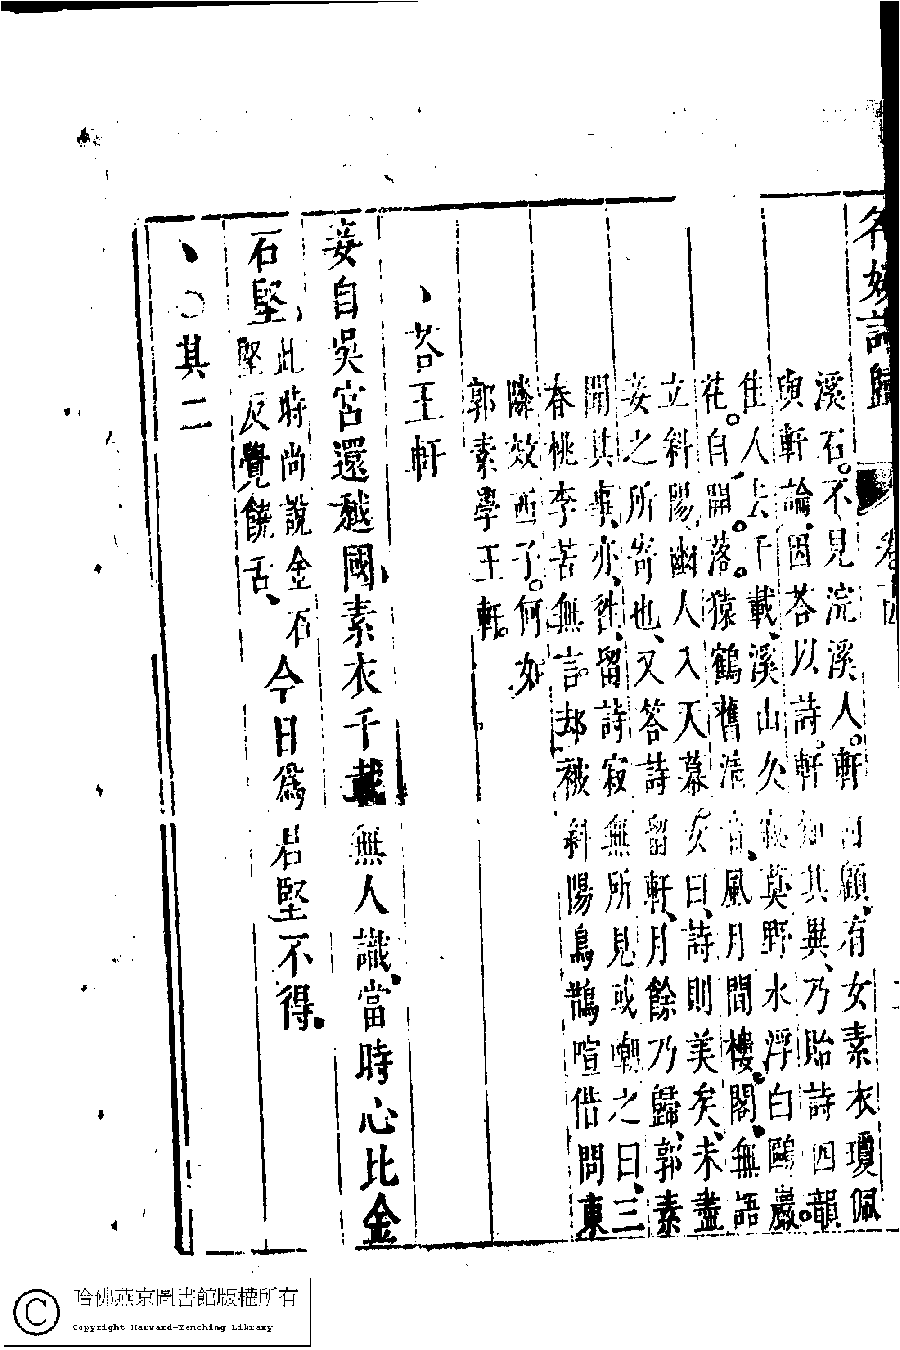 名媛詩歸 卷十四
溪石不見浣溪人軒回顧有女素衣瓊佩
與軒論因荅以詩軒知其異乃貽詩四韻
佳人去千載溪山久寂莫野水浮白鷗巖
花自開落猿鶴舊清音風月間樓閣無語
立斜陽幽人入天幕女曰詩則美矣未盡
妾之所寄也又答詩留軒月餘乃歸郭素
聞其事亦 留詩寂無所見或嘲之曰三
春桃李苦無言却被斜陽鳥鵲喧借問東
隣效西子何如
郭素學王軒
荅王軒
妾自吳宮還越國素衣千載無人識當時心比金
石堅此時尚說金石堅反覺饒舌今日為君堅不得
〇其二
哈佛燕京圖書館版權所有
Copyright Harvard-Yenching Library